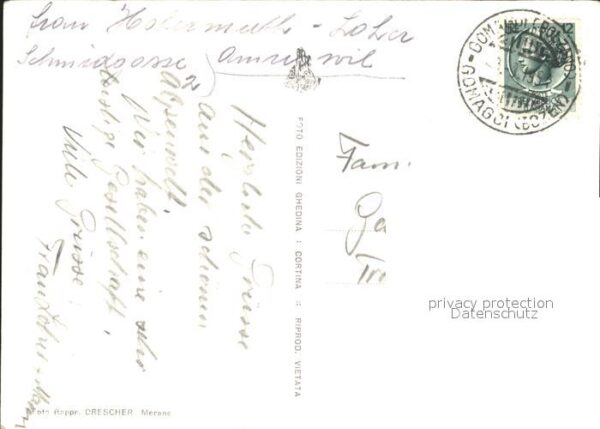 Frau Habermuth - Loher
Schmidgasse 2 Amriswil
Herzliche Grüsse
aus der schönen
Alpenwelt.
Wir haben eine sehr
lustige Gesellschaft.
Viele Grüsse
FOTO EDIZIONI GHEDINA : CORTINA = RIPROD. VIETATA
Fam.
Ga
GOMAGOI (BOLZANO)
GOMAGOI (BOZEN)
privacy protection
Datenschutz
Foto Rappr. DRESCHER Merano